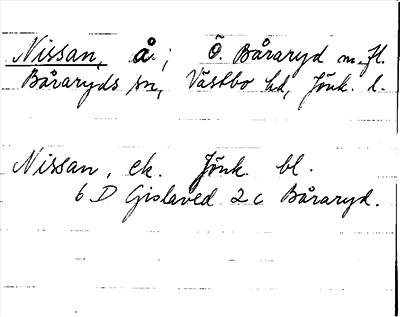 Nissan, å; Ö. Båraryd m.fl.
Båraryds sn, Västbo hd, Jönk. l.
Nissan, ek. Jönk. bl.
6 D Gislaved 2 c Båraryd.